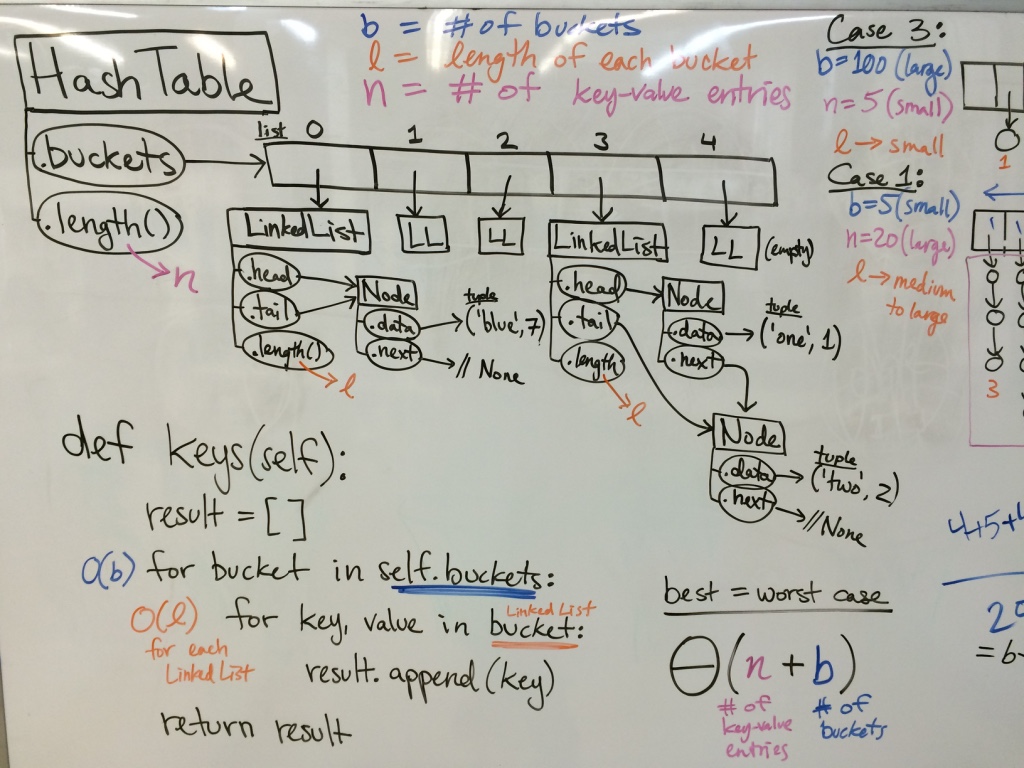 HashTable
.buckets
.length()
n
b = # of buckets
l = length of each bucket
n = # of key-value entries
list 0 1 2 3 4
LinkedList
LL
LL
LinkedList
LL
(empty)
.head
.tail
.length()
l
Node
.data
.next
tuple
('blue', 7)
// None
.head
.tail
.length
l
Node
.data
.next
tuple
('one', 1)
Node
.data
.next
tuple
('two', 2)
// None
Case 3:
b=100 (large)
n=5 (small)
l → small
1
Case 1:
b=5 (small)
n=20 (large)
l → medium
to large
3
def keys(self):
result = []
O(b) for bucket in self.buckets:
Linked List
O(l) for key, value in bucket:
for each
Linked List
result.append(key)
return result
best = worst case
Θ(n + b)
# of
key-value
entries
# of
buckets
4+5+
= b